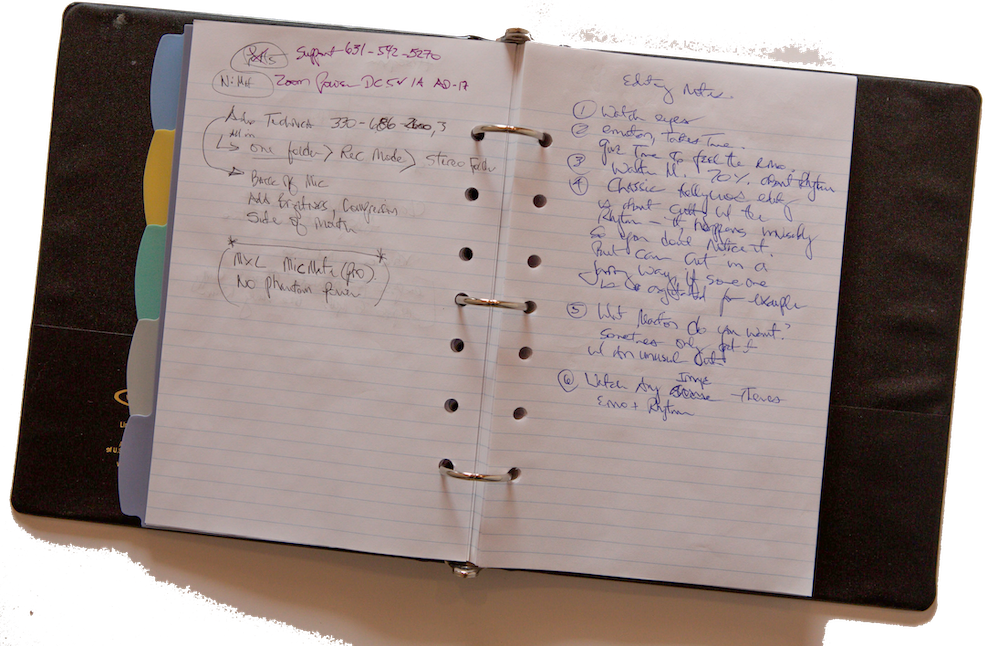 Support 631-542-5270
NiMH Zoom Power DC5V 1A AD-17
330-686 3
All in
one folder > Rec Mode > Stereo Folder
Back of Mic
Add Brightness, Compression
Side of mouth
MXL MicMate (pro)
No phantom power
Editing Notes
1 Watch eyes
2 emotion, takes Time.
give Time to feel the emo.
3 Walter M. 70% about Rhythm
4 Classic Hollywood editing
is about cutting w the
Rhythm - it happens invisibly
So you don't Notice it.
But can cut in a
way if someone
is for example
5 What Reaction do you want?
sometimes only get it
w an unusual
6 Watch Any Image
Emo + Rhythm